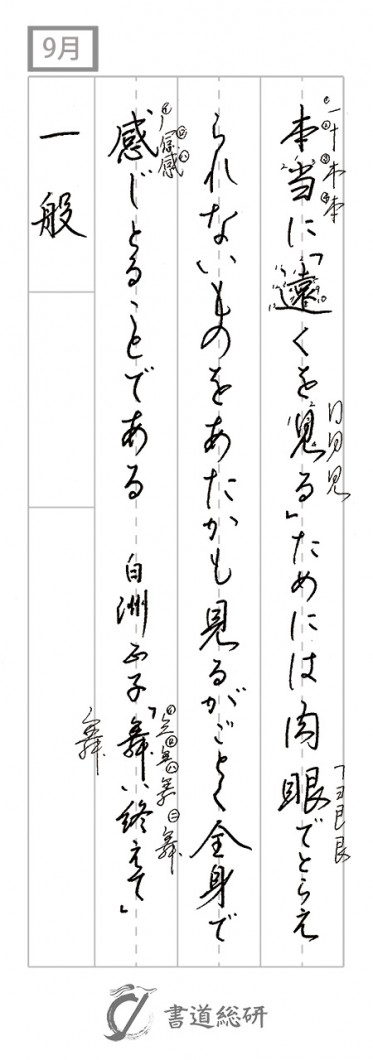 9月
本当に「遠くを見る」ためには肉眼でとらえ
られないものをあたかも見るがごとく全身で
感じとることである 白洲正子「舞い終えて」
一般
書道総研